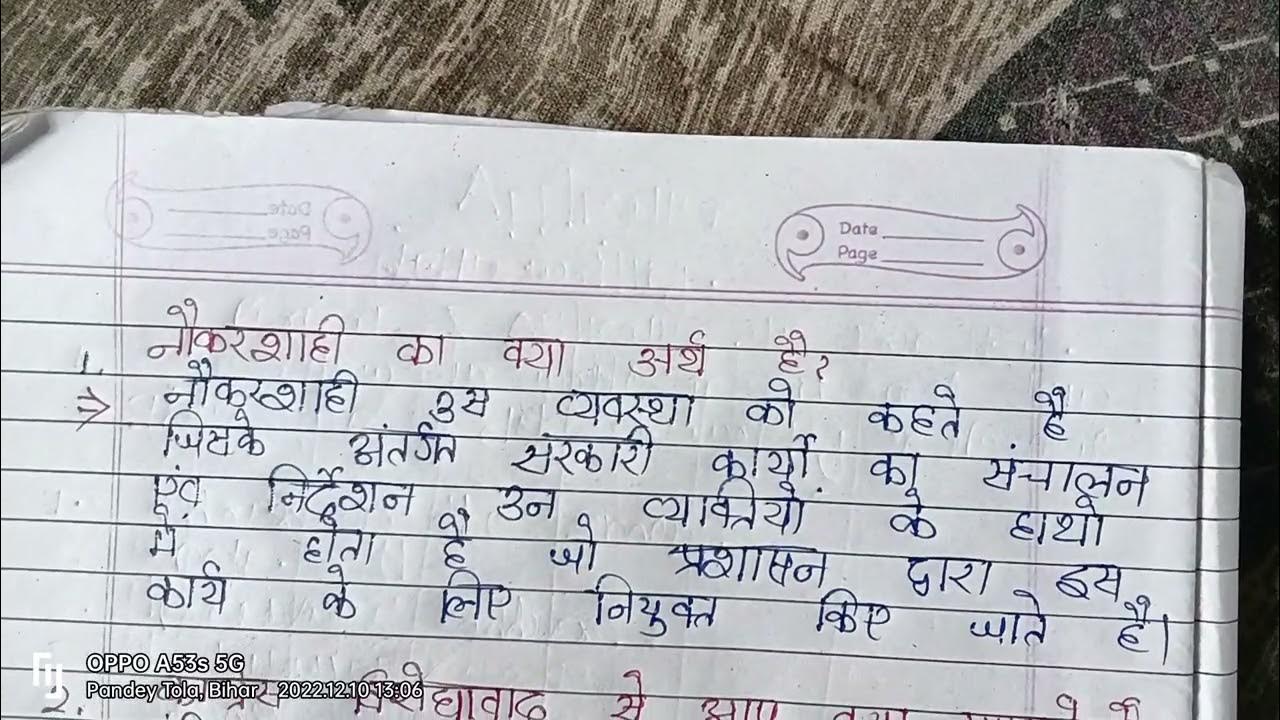 Date
Page
नौकरशाही का क्या अर्थ है?
1.
⇒ नौकरशाही उस व्यवस्था को कहते है
जिसके अंतर्गत सरकारी कार्यों का संचालन
एंव निर्देशन उन व्यक्तियों के हाथो
में होता है जो प्रशासन द्वारा इस
कार्य के लिए नियुक्त किए जाते है।
OPPO A53s 5G
Pandey Tola, Bihar 2022.12.10 13:06
2. से आप क्या